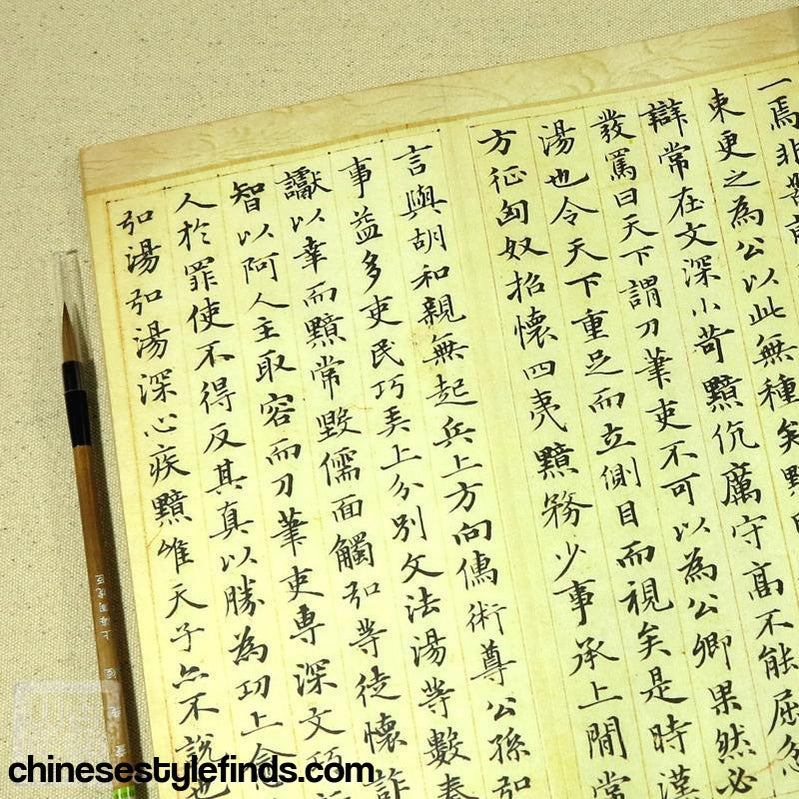 一焉非苦
束更之為公以此無種矣黯
辯常在文深小苛黯伉厲守高不能屈忿
發罵曰天下謂刀筆吏不可以為公卿果然必
湯也令天下重足而立側目而視矣是時漢
方征匈奴招懷四夷黯務少事承上閒常
言與胡和親無起兵上方向儒術尊公孫弘
事益多吏民巧弄上分別文法湯等數奏
讞以幸而黯常毀儒面觸弘等徒懷詐
智以阿人主取容而刀筆吏專深文巧
人於罪使不得反其真以勝為功上愈
弘湯弘湯深心疾黯唯天子亦不說也
chinesestylefinds.com